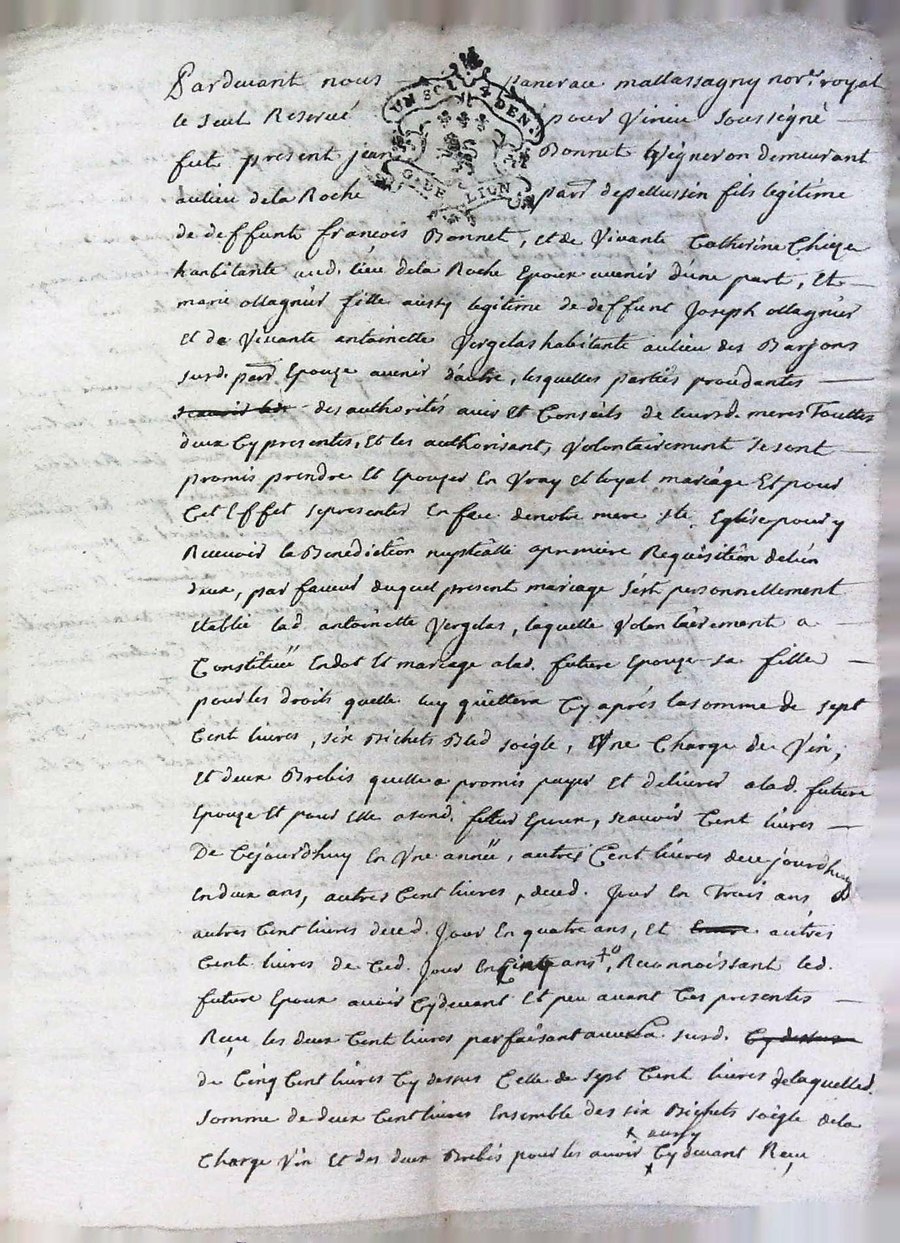 Pardevant nous pancrace mallassagny nore. royal
le seul Reservé pour Virieu soussigné
fut present jean Bonnet Vigneron demeurant
au lieu dela Roche parr. depellussin fils legitime
de deffunt francois Bonnet, et de Vivante Catherine Chieze
habitante aud. lieu dela Roche Epoux avenir d'une part, Et
marie ollagnier fille aussy legitime de deffunt Joseph ollagnier
et de Vivante antoinette Vergelas habitante aulieu des Barjons
susd. parr. Epouze avenir d'autre, lesquelles parties procédantes
des authorités avis Et Conseils de leursd. meres Touttes
deux Cy presentes, Et les authorisant, Volontairement se sont
promis prendre Et Epouzer En Vray Et loyal mariage Et pour
Cet Effet se presenter En face denotre mere ste. Eglise pour y
Recevoir la Benediction nuptialle a premiere Requisition de l'un
deux, par faveur duquel present mariage sest personnellement
Etablie lad. antoinette Vergelas, laquelle Volontairement a
Constitué En dot Et mariage alad. future Epouze sa fille
pour les droits quelle luy quittera Cy aprés la somme de sept
Cent livres, six Bichets Bled soigle, Une Charge de Vin,
Et deux Brebis quelle a promis payer Et delivrer alad. future
Epouze Et pour Elle a sond. futur Epoux, scavoir Cent livres
De Cejourdhuy En Une année, autres Cent livres de ce jourdhuy
En deux ans, autres Cent livres, de ced. Jour En Trois ans
autres Cent livres de ced. Jour En quatre ans, et autres
Cent livres de Ced. Jour En Cinq ans, Reconnoissant led.
future Epoux avoir Cydevant Et peu avant Ces presentes
Reçu les deux Cent livres parfaisant avec la susd.
de Cinq Cent livres Cy dessus Celle de sept Cent livres delaquelled.
somme de deux Cent livres Ensemble des six Bichets soigle de la
aussy
Charge Vin Et des deux Brebis pour les avoir Cydevant Reçu
UN SOL 4 DEN.
G. DE LION